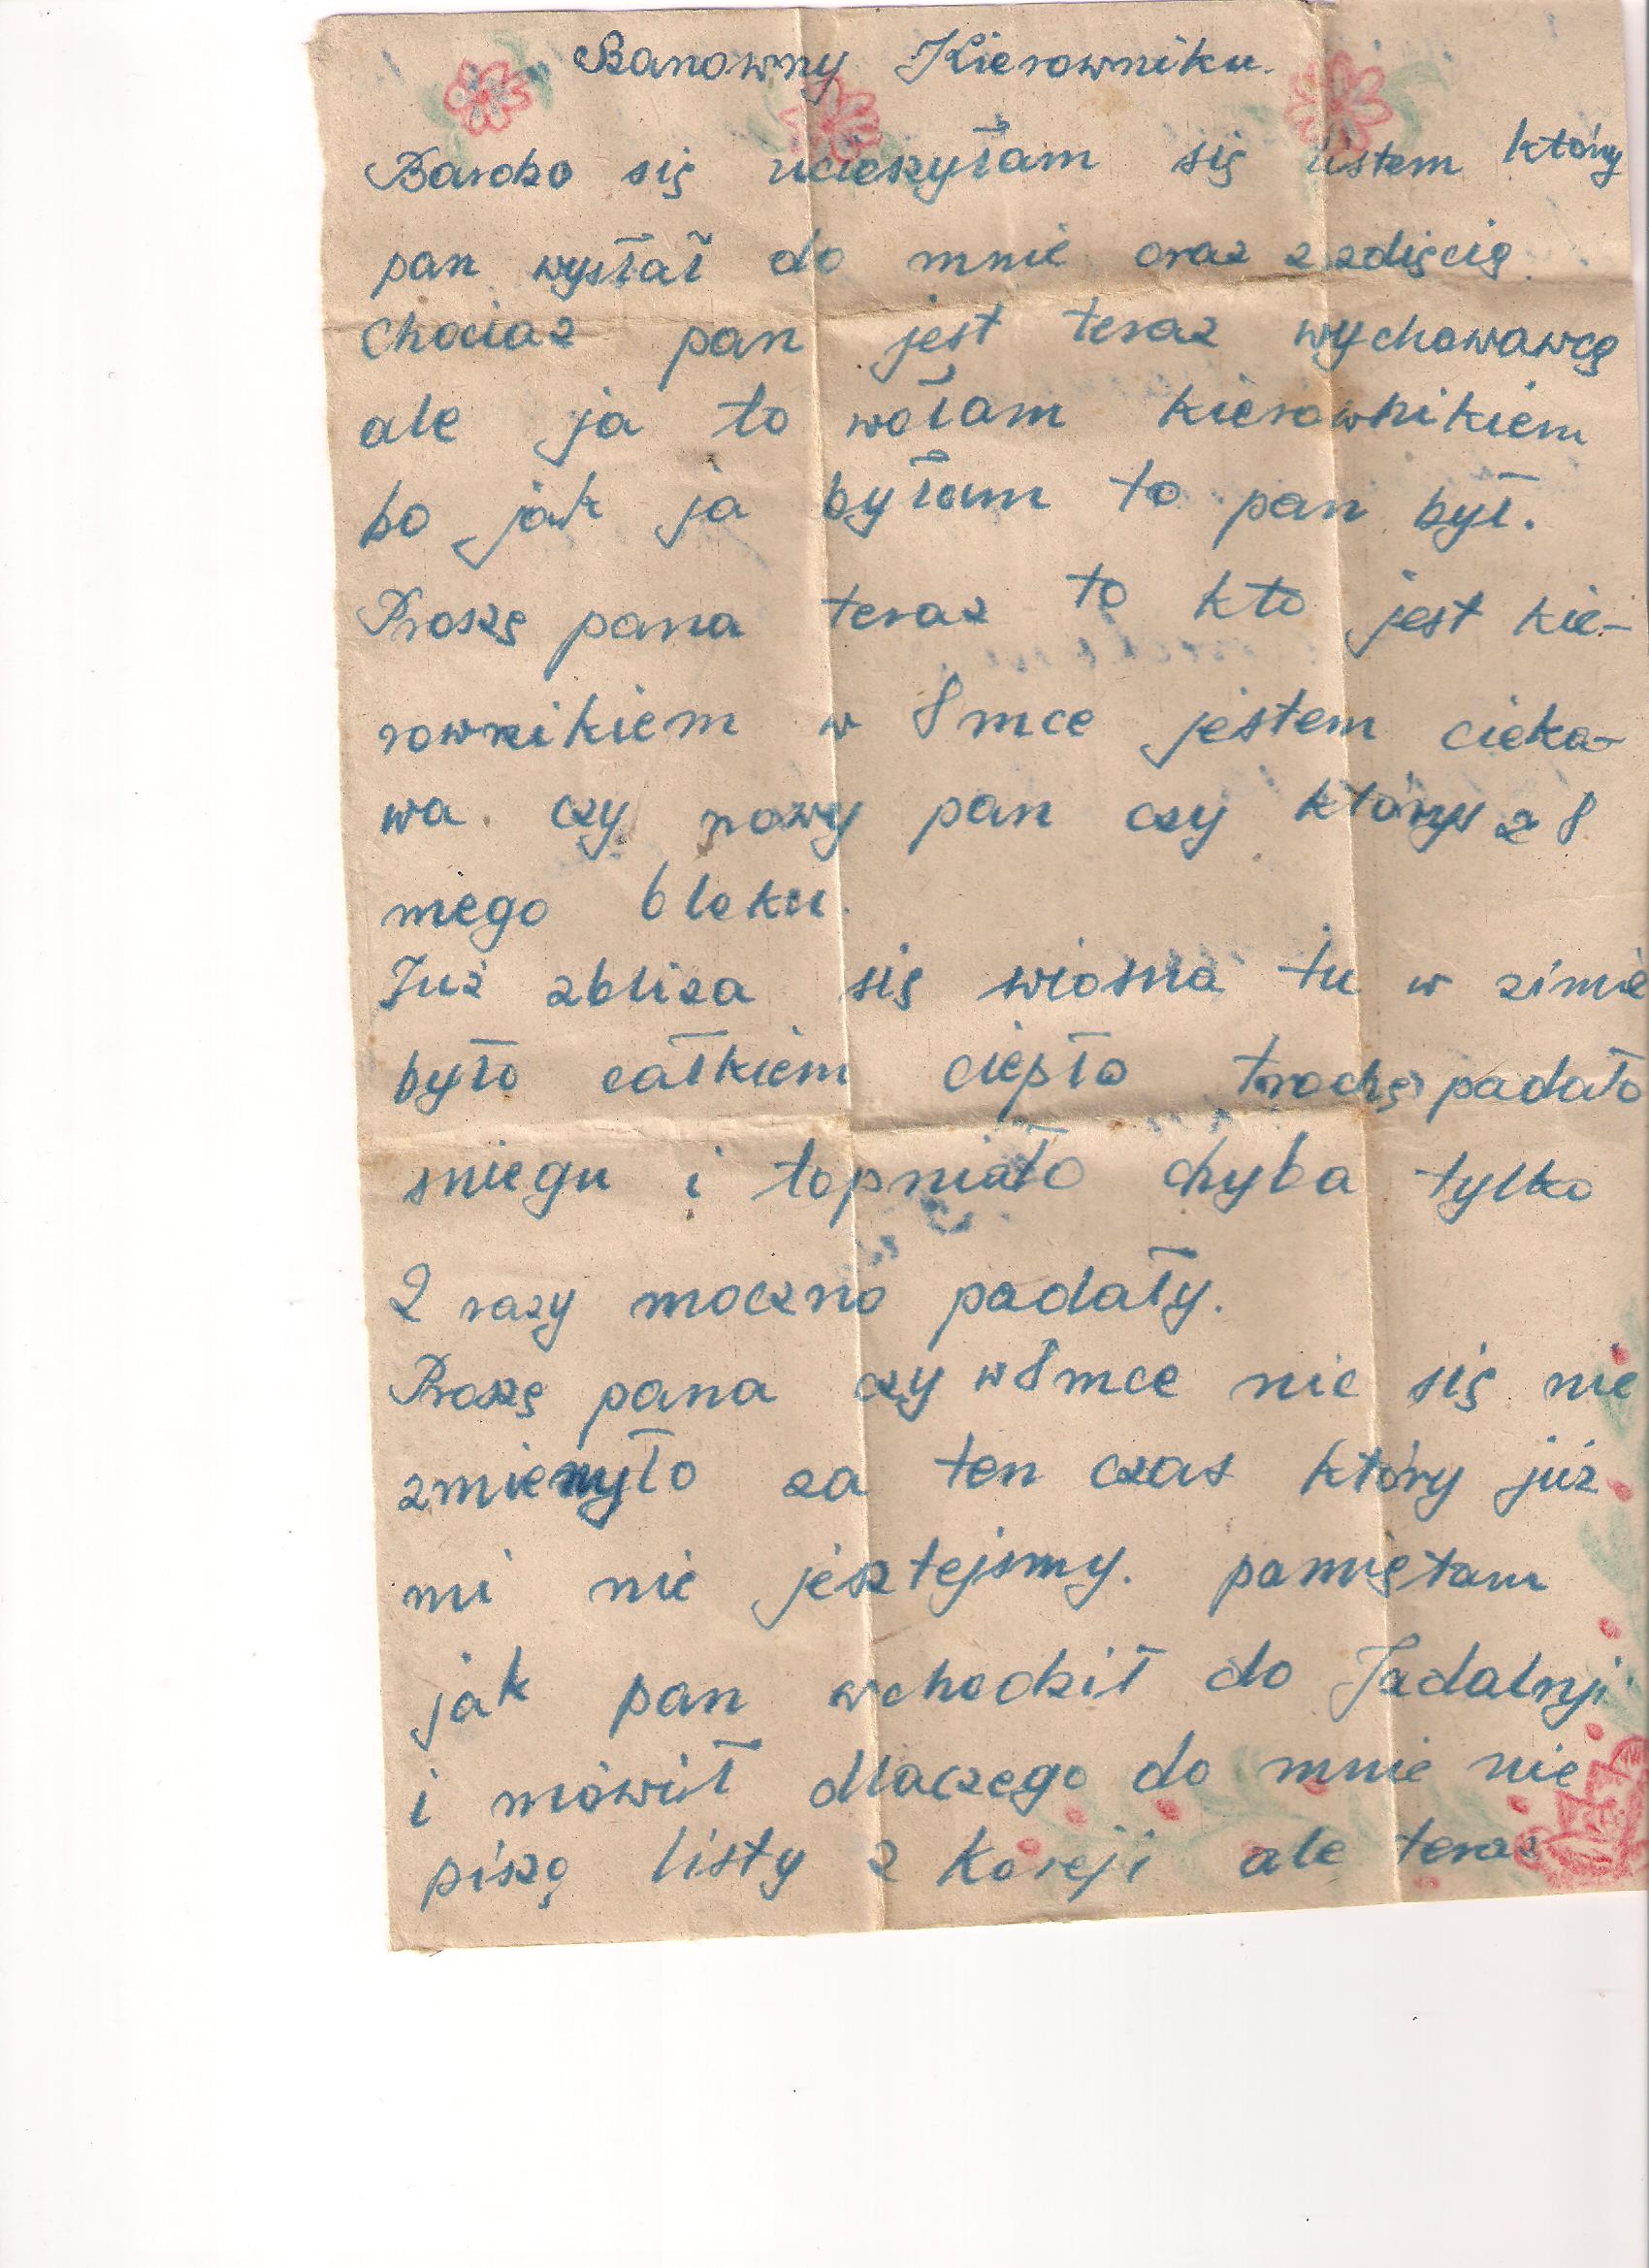 Szanowny Kierowniku.
Bardzo się ucieszyłam się listem który
pan wysłał do mnie oraz z zdięcię
chociaz pan jest teraz wychowawcą
ale ja to wołam kierownikiem
bo jak ja byłam to pan był.
Proszę pana teraz to kto jest kie-
rownikiem w 8 mce jestem cieka-
wa czy nowy pan czy któryś z 8
mego bloku.
Już zbliza się wiosna tu w zimie
było całkiem ciepło trochę padało
sniegu i topniało chyba tylko
2 razy moczno padały.
Proszę pana czy w 8mce nic się nie
zmienyło za ten czas który już
mi nie jesztejsmy. pamiętam
jak pan wchodził do Jadalnji
i mówił dlaczego do mnie nie
piszą listy z Koreji ale teraz